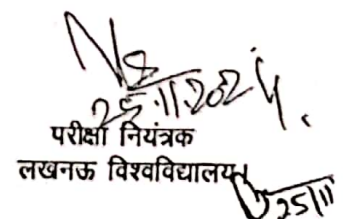 25.11.2024
परीक्षा नियंत्रक
लखनऊ विश्वविद्यालय
25/11